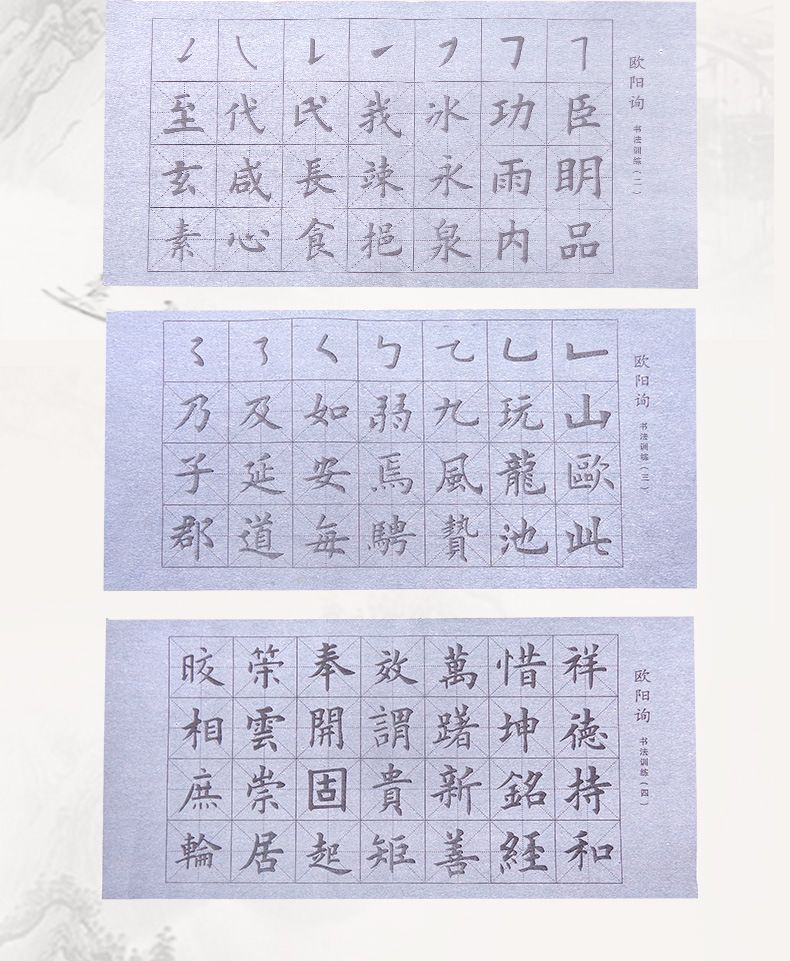 欧阳询
书法训练（二）
臣眀品
功雨内
冰永泉
我竦挹
民長食
代咸心
至玄素
欧阳询
书法训练（三）
山歐此
玩龍池
九風贄
弱焉騁
如安每
及延道
乃子郡
欧阳询
书法训练（四）
祥徳持和
惜坤銘經
萬躇新善
效謂貴矩
奉開固起
雲崇居
相庶輪